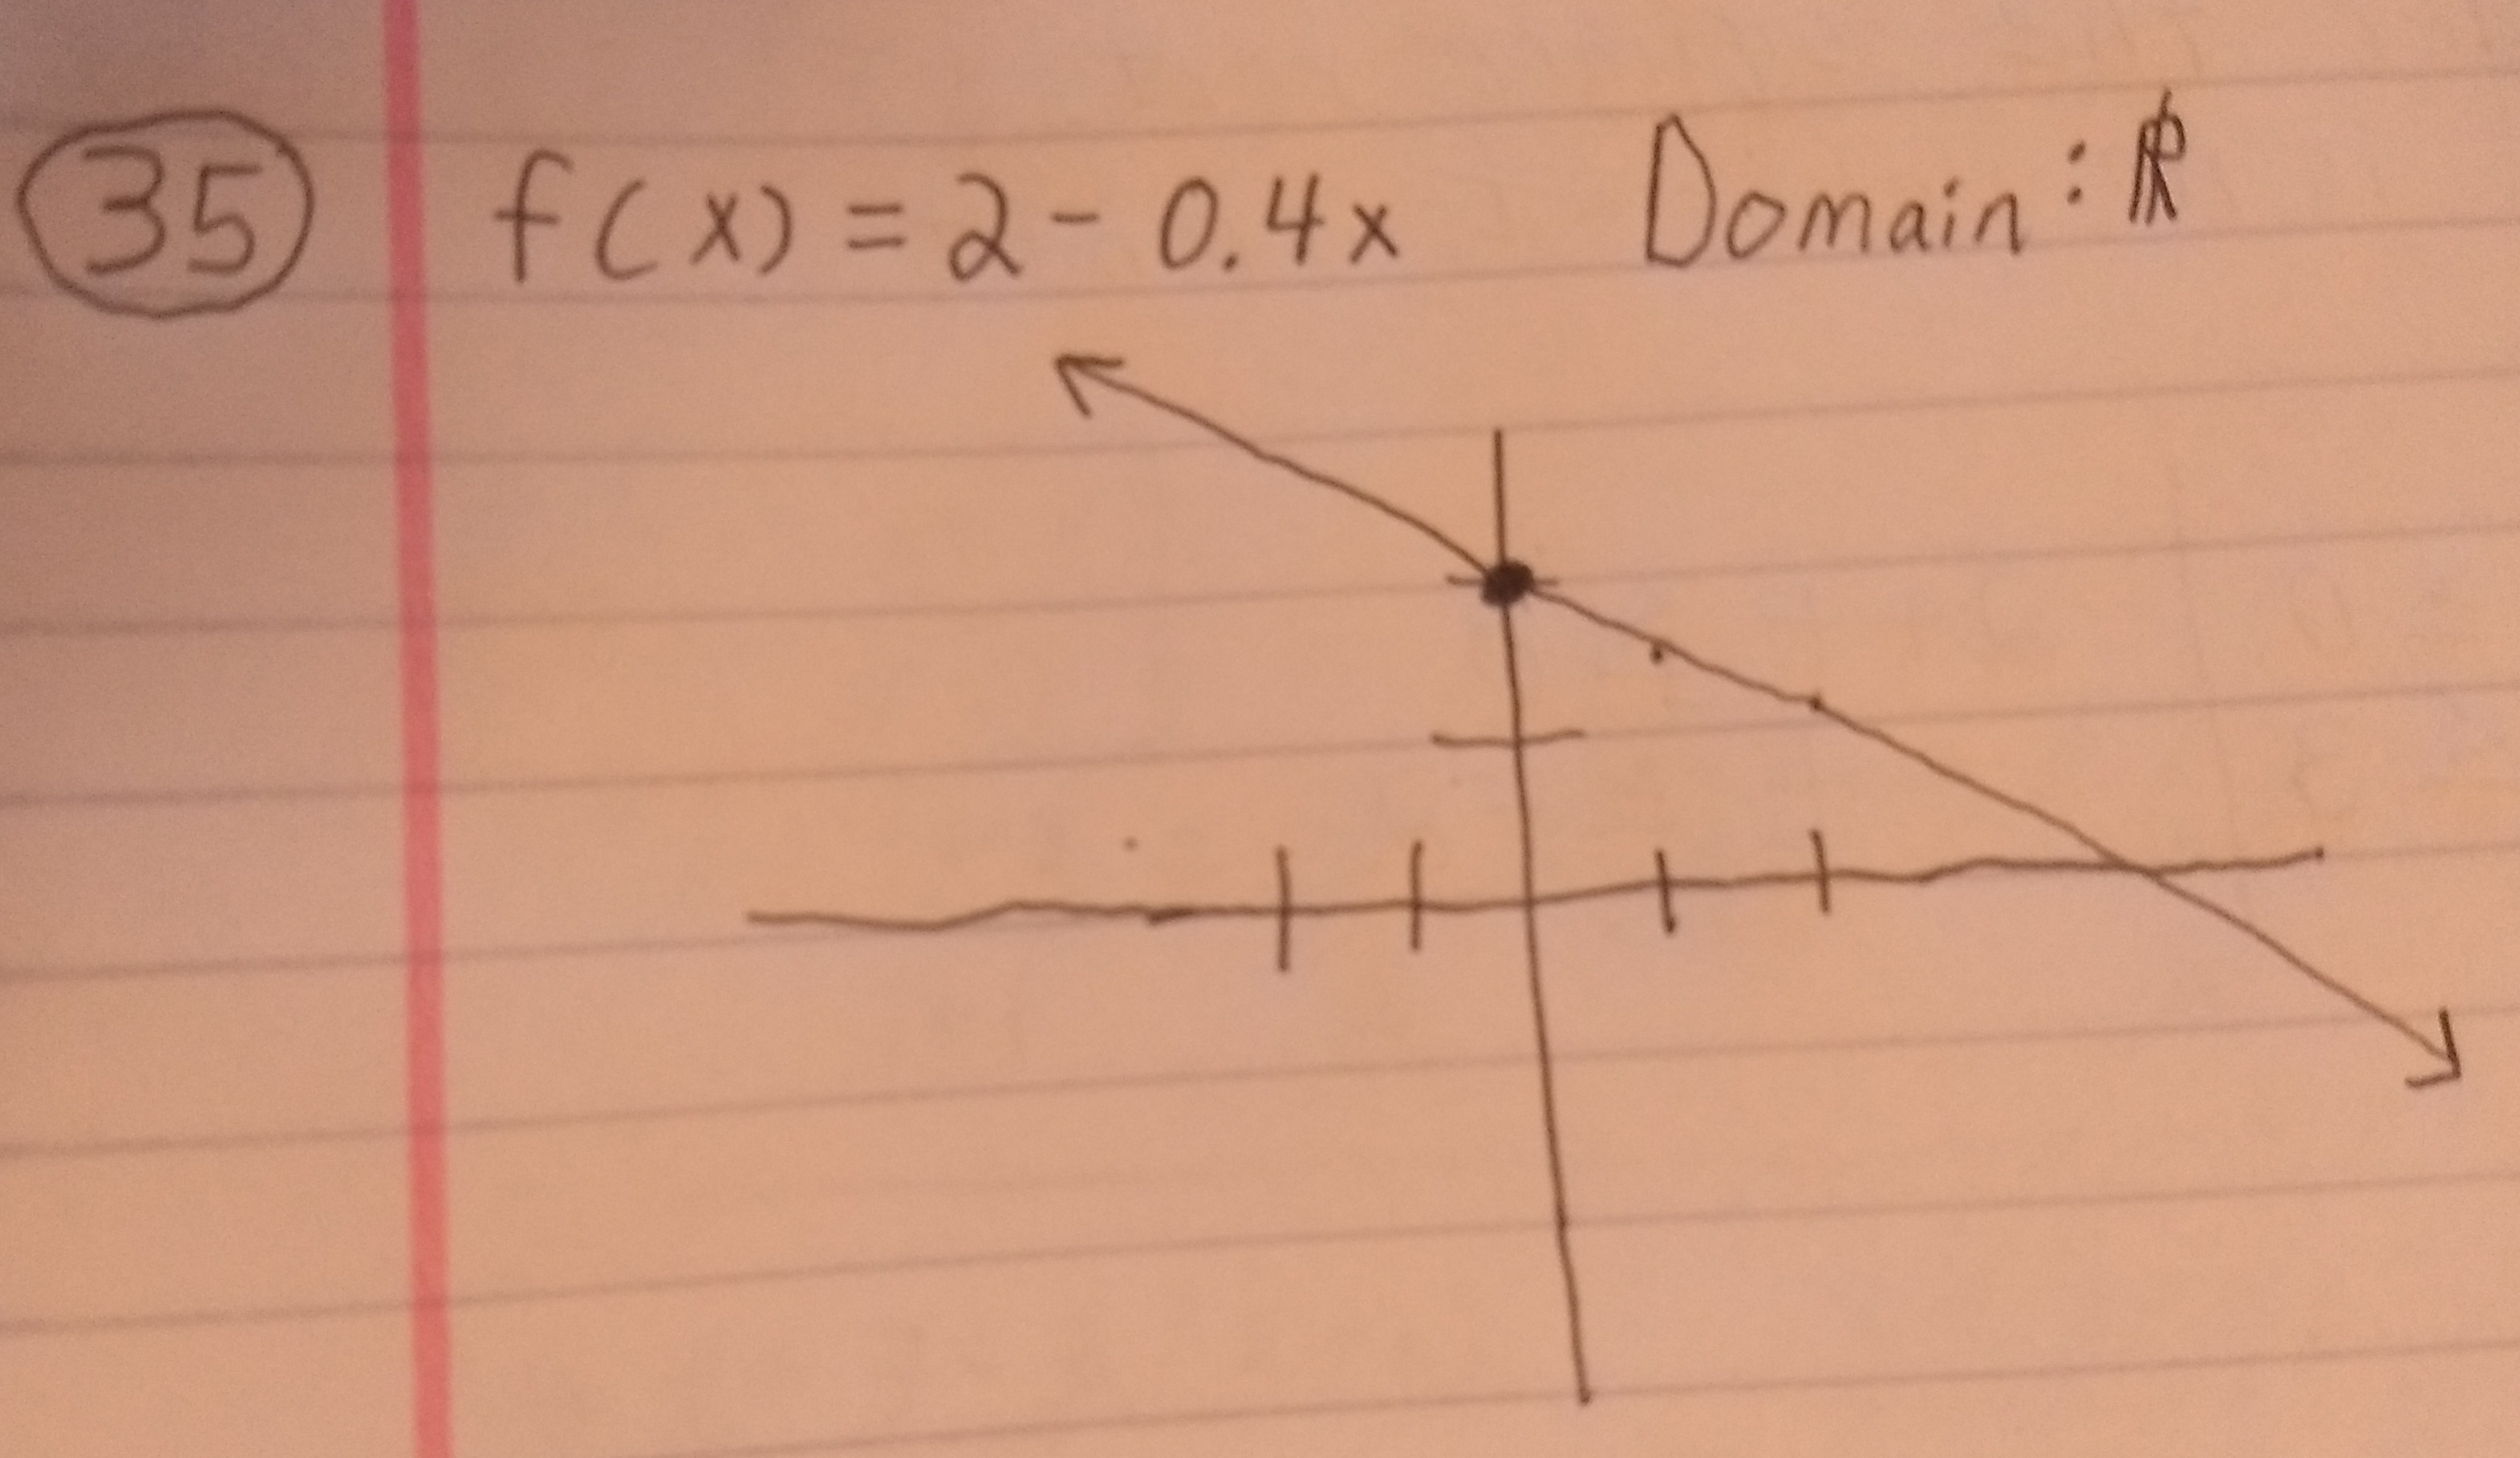 35 f(x) = 2 - 0.4x Domain: ℝ